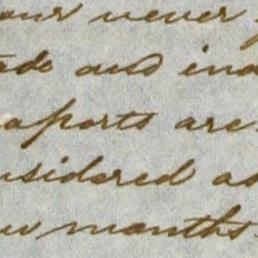 our never
ade and ind
aports are
nsidered as
w months